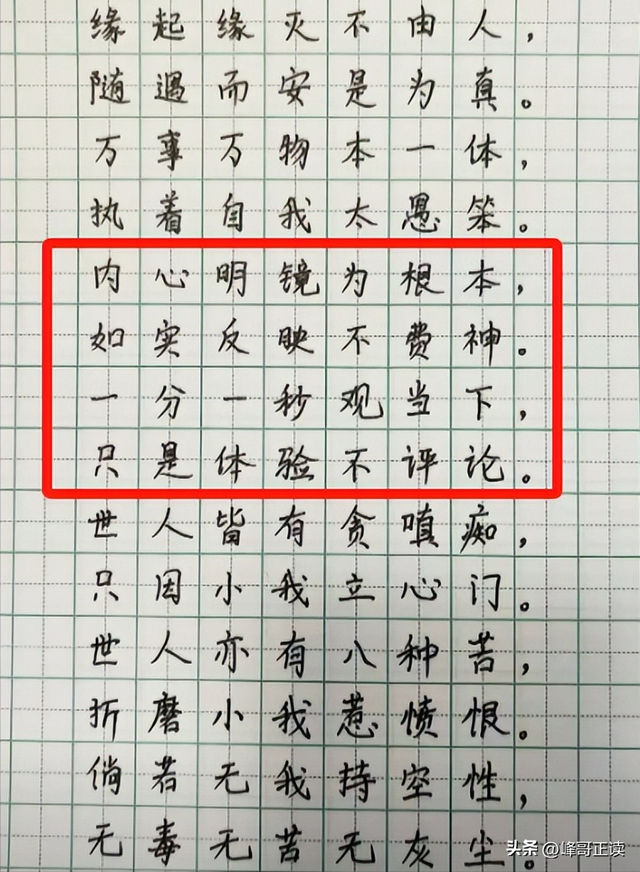 缘起缘灭不由人，
随遇而安是为真。
万事万物本一体，
执着自我太愚笨。
内心明镜为根本，
如实反映不费神。
一分一秒观当下，
只是体验不评论。
世人皆有贪嗔痴，
只因小我立心门。
世人亦有八种苦，
折磨小我惹愤恨。
倘若无我持空性，
无毒无苦无灰尘。
头条 @峰哥正读